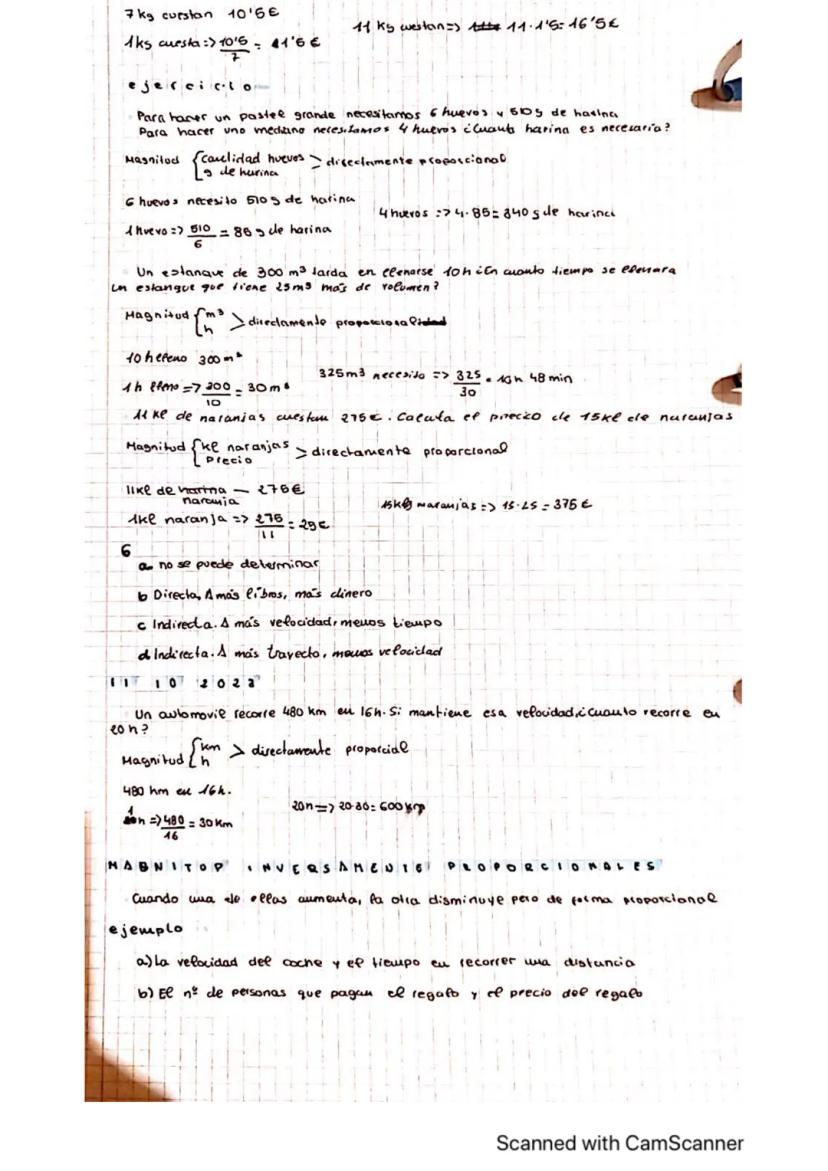 7 kg curstan 10'5€
11 kg cuestan=> 11·1'5= 16'5€
1kg cuesta=> 10'5/7 = 1'5€
ejercicio
Para hacer un pastel grande necesitamos 6 huevos y 510g de harina
Para hacer uno mediano necesitamos 4 huevos ¿Cuanta harina es necesaria?
Magnitud {cantidad huevos > directamente proporcional
g de harina
6 huevos necesito 510g de harina
4 huevos => 4·85= 340 g de harina
1 huevo => 510/6 = 85 g de harina
Un estanque de 300 m³ tarda en llenarse 10h ¿En cuanto tiempo se llenara
un estanque que tiene 25m³ más de volumen?
Magnitud {m³ > directamente proporcional
h
10h lleno 300m³
325m3 necesito => 325/30 = 10h 48 min
1h lleno => 300/10 = 30m³
11 kl de naranjas cuestan 275€. Calcula el precio de 15kl de naranjas
Magnitud {kl naranjas > directamente proporcional
Precio
11kl de harina — 275€
naranja
15kg naranjas => 15·25 = 375€
1kl naranja => 275/11 = 25€
6
a no se puede determinar
b Directa, A más libros, más dinero
c Indirecta. A más velocidad, menos tiempo
d Indirecta. A más trayecto, menos velocidad
11 10 2023
Un automovil recorre 480 km en 16h. Si mantiene esa velocidad,¿Cuanto recorre en
20h?
Magnitud {km > directamente proporcial
h
480 km en 16h.
20h => 20·30= 600 km
1h => 480/16 = 30 Km
MAGNITOP INVERSAMENTE PROPORCIONALES
Cuando una de ellas aumenta, la otra disminuye pero de forma proporcional
ejemplo
a) La velocidad del coche y el tiempo en recorrer una distancia
b) El nº de personas que pagan el regalo y el precio del regalo
Scanned with CamScanner